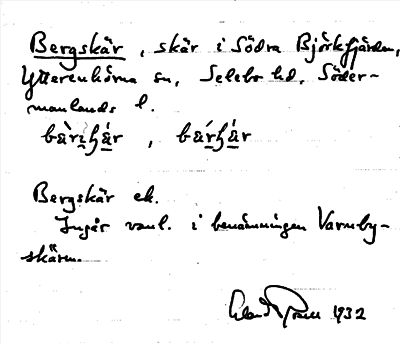 Bergskär, skär i Södra Björkfjärden,
Ytterenhörna sn, Selebo hd, Söder-
manlands l.
Bergskär ek.
Ingår vanl. i benämningen Varnby-
skären.
1932